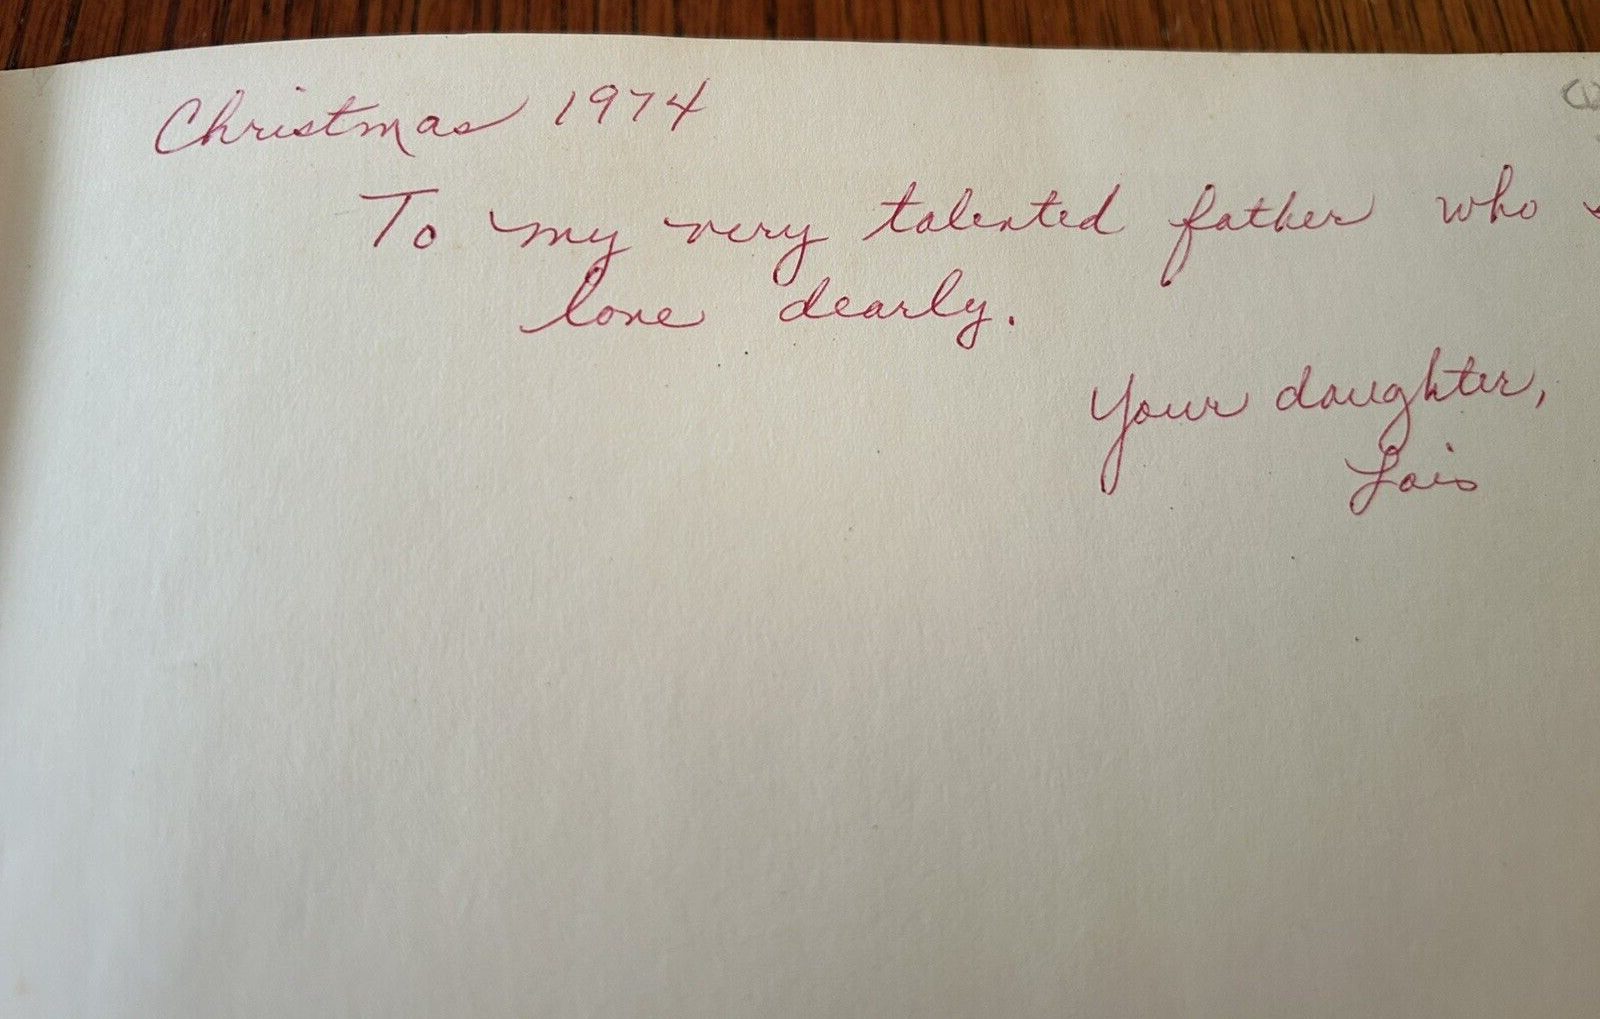 Christmas 1974
To my very talented father who
love dearly.
Your daughter,
Lois